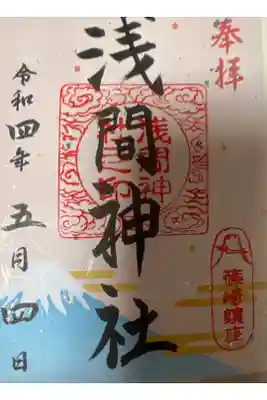 奉拝
浅間神社
浅間神
社之印
篠崎鎮座
令和四年五月四日